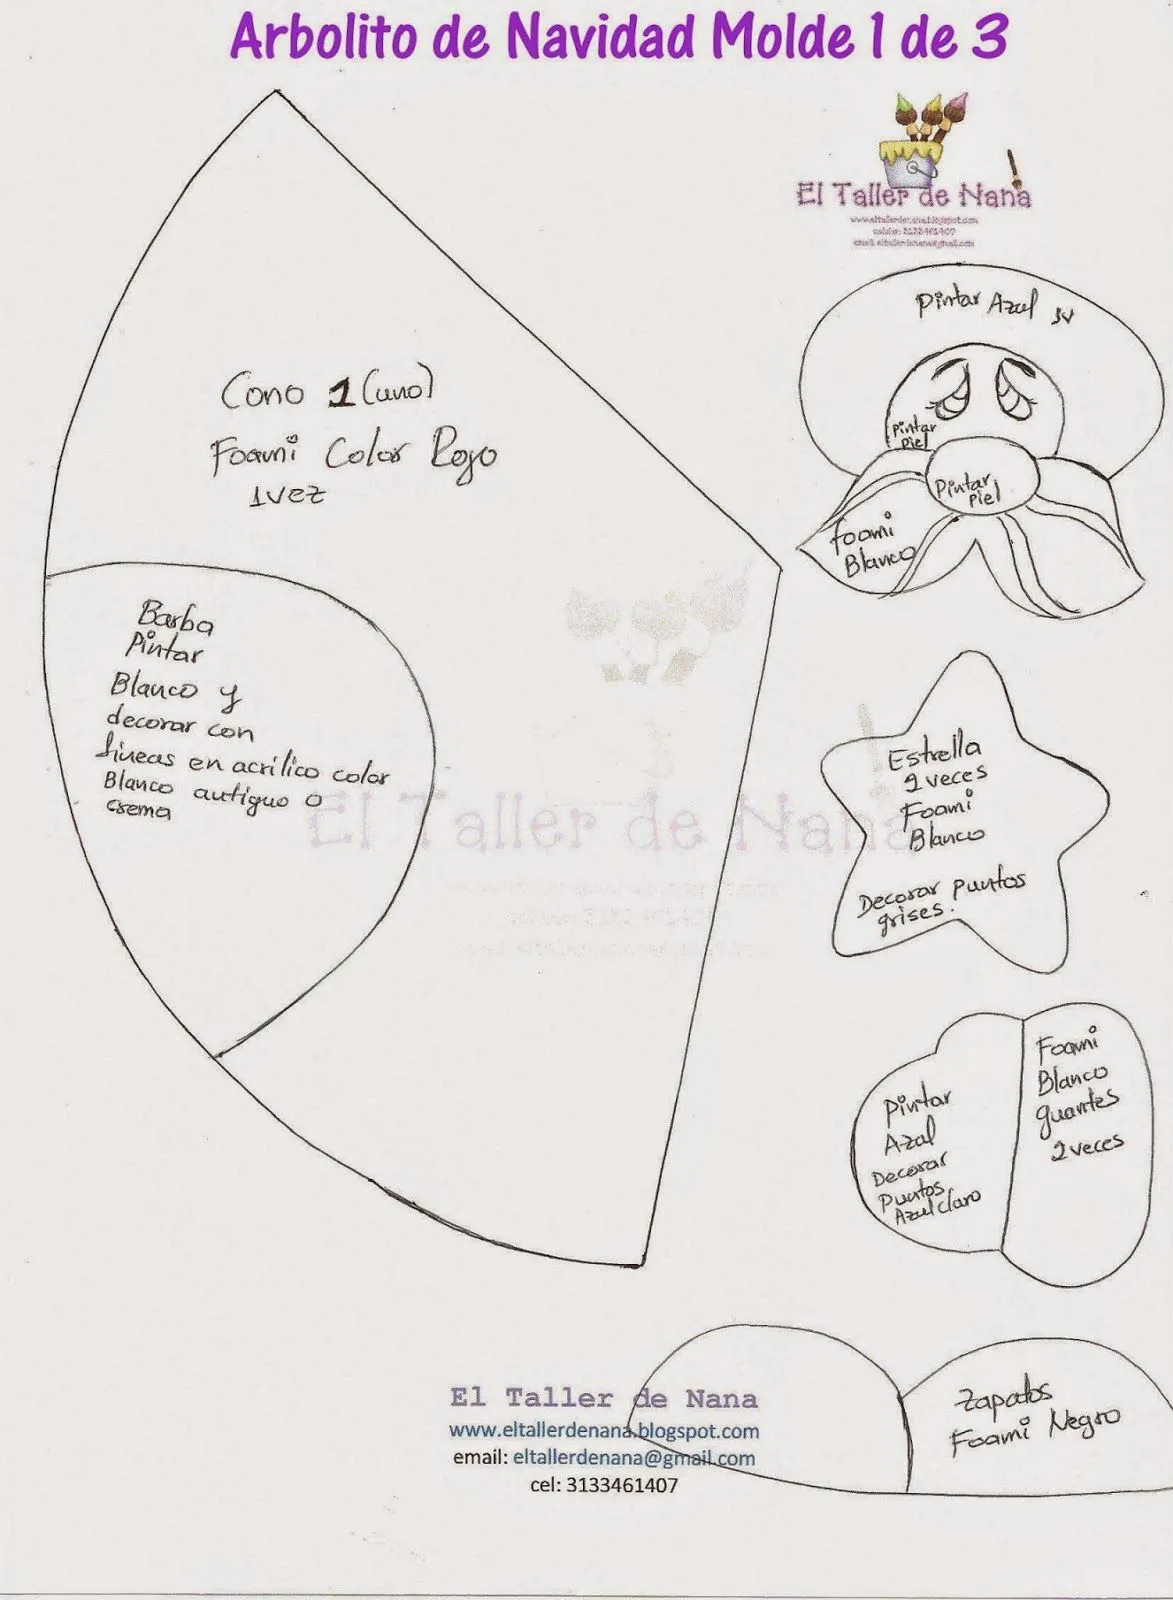 Arbolito de Navidad Molde 1 de 3
El Taller de Nana
www.eltallerdenana.blogspot.com
celular: 3133461407
email: eltallerdenana@gmail.com
Pintar Azul
Pintar
piel
Pintar
piel
Foami
Blanco
Cono 1 (uno)
Foami Color Rojo
1 vez
Barba
Pintar
Blanco y
decorar con
lineas en acrilico color
Blanco antiguo o
crema
El Taller de Nana
Estrella
2 veces
Foami
Blanco
Decorar puntos
grises.
Pintar
Azul
Decorar
Puntos
Azul claro
Foami
Blanco
guantes
2 veces
Zapatos
Foami Negro
El Taller de Nana
www.eltallerdenana.blogspot.com
email: eltallerdenana@gmail.com
cel: 3133461407